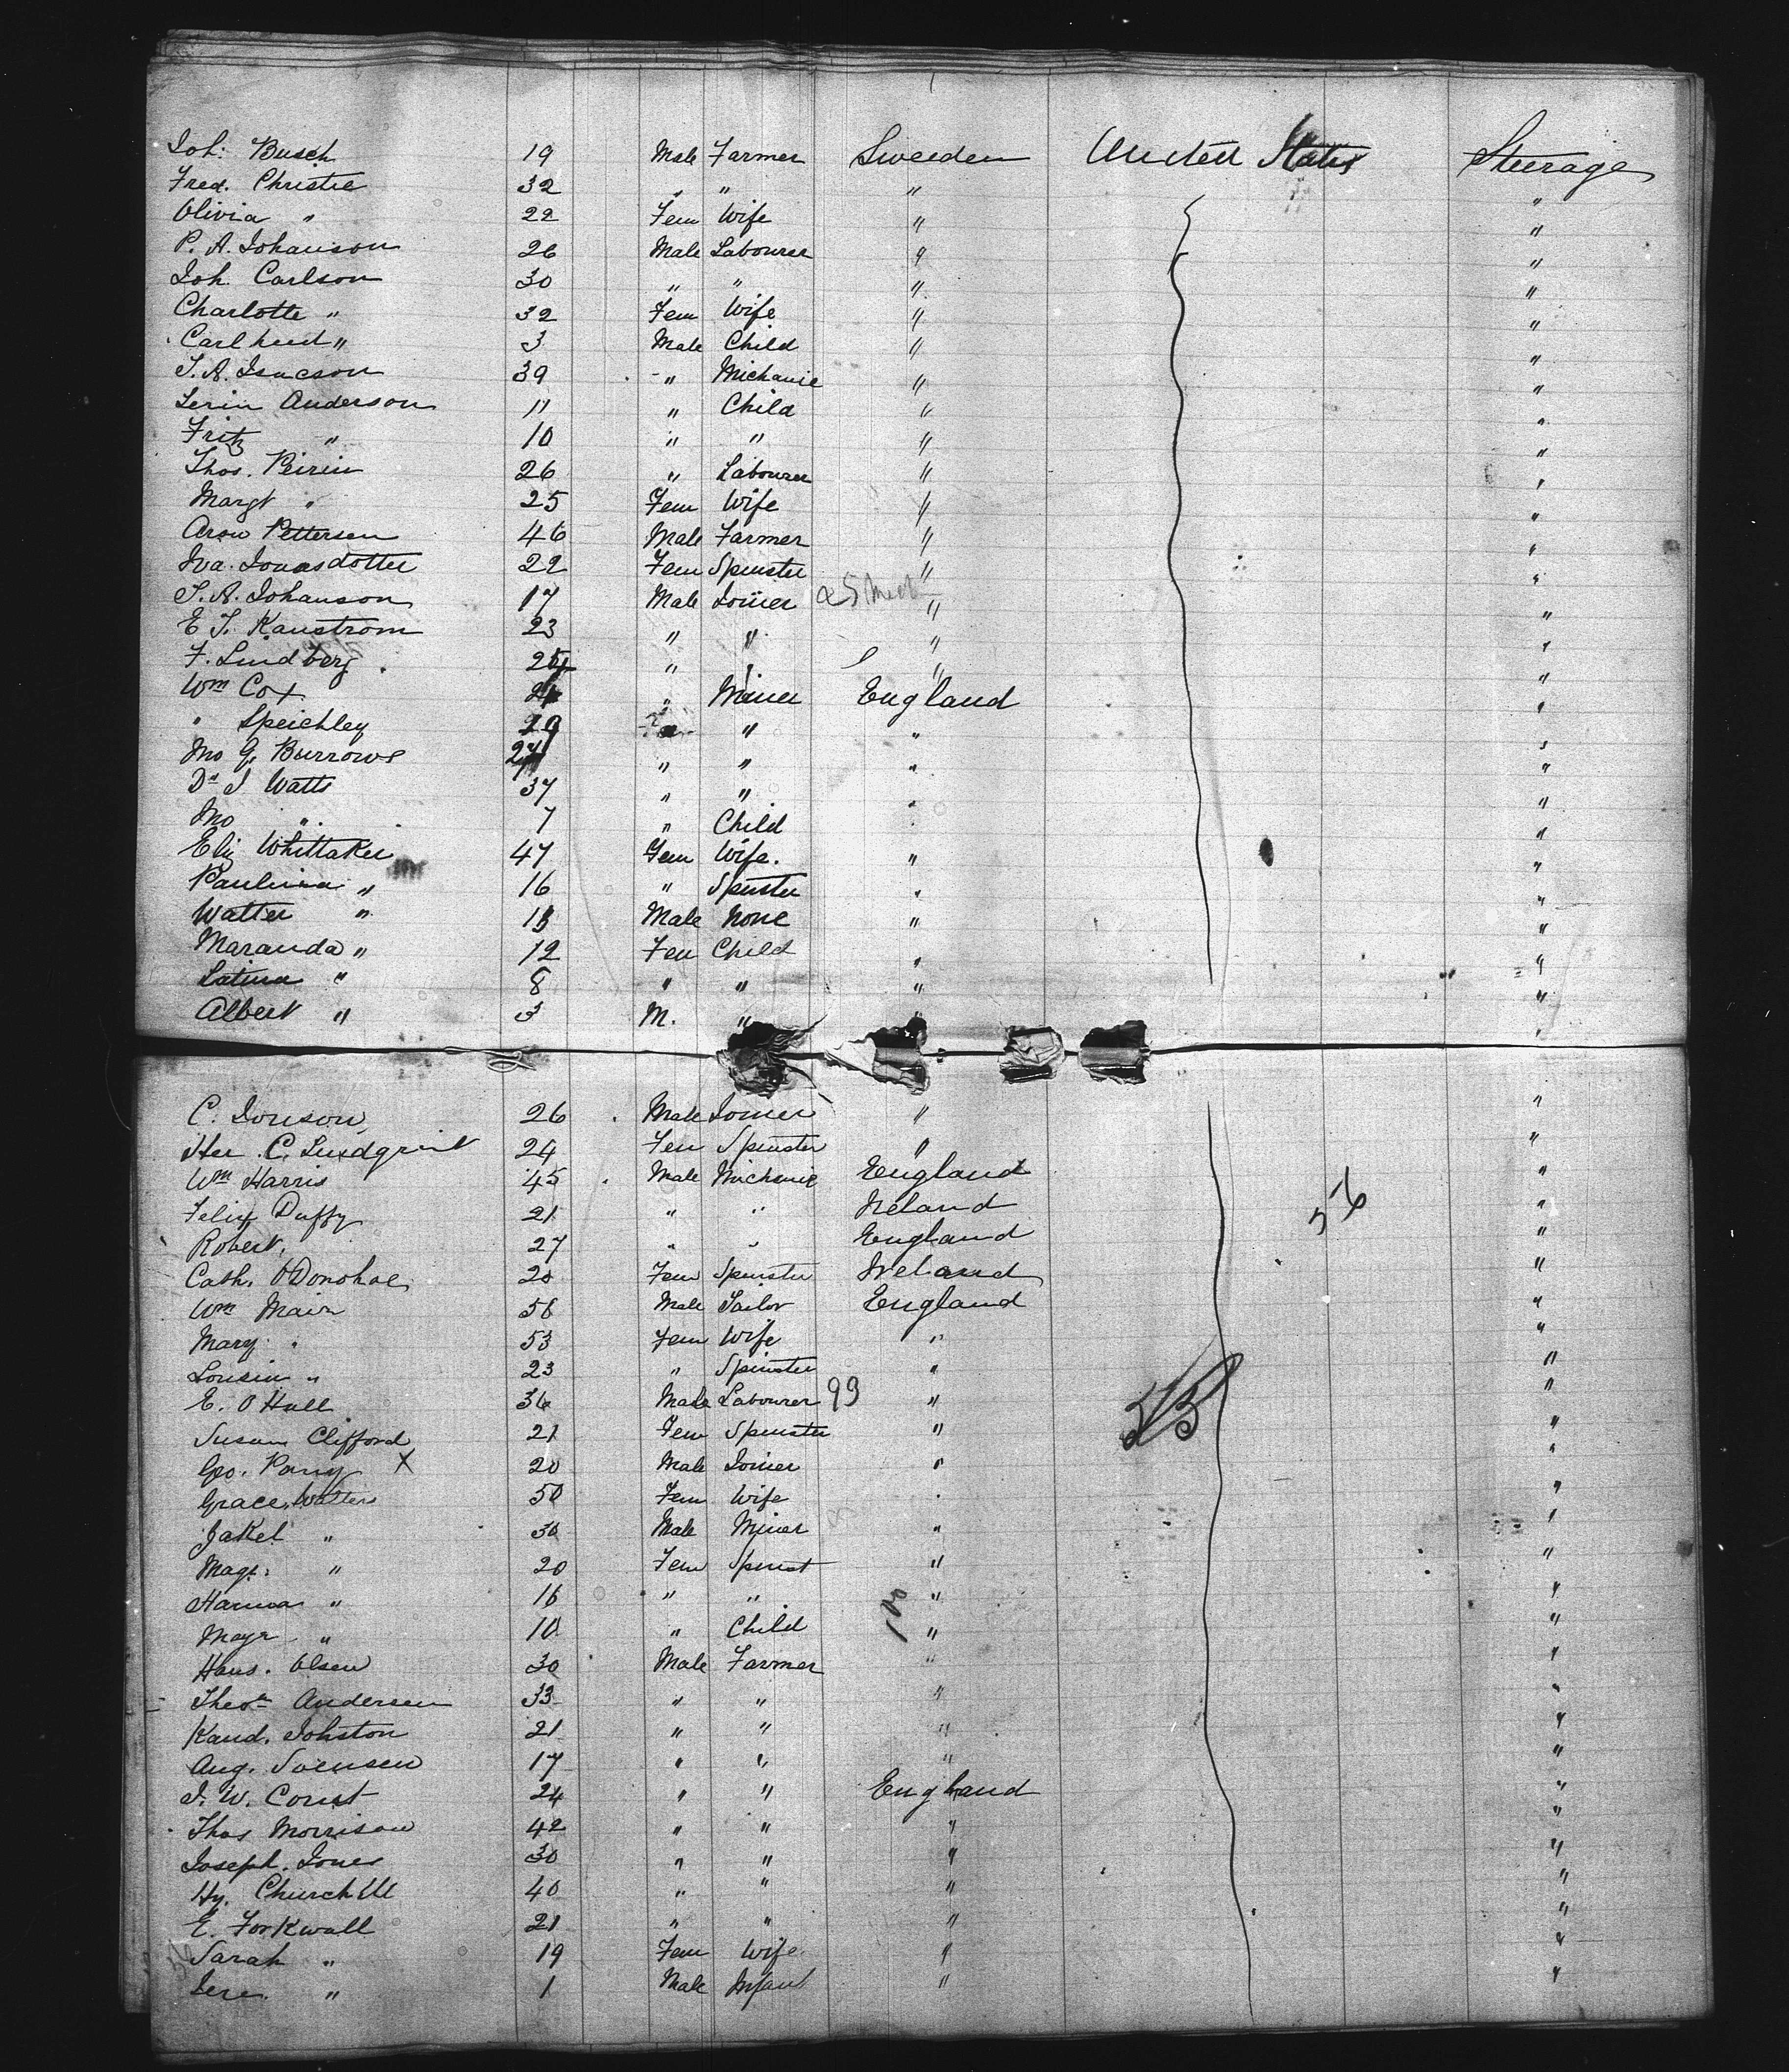 Joh: Busch 19 Male Farmer Sweeden United States Steerage
Fred. Christie 32 " " " "
Olivia " 22 Fem Wife " "
P. A. Johanson 26 Male Labourer " "
Joh. Carlson 30 " " " "
Charlotte " 32 Fem Wife " "
Carl " 3 Male Child " "
J. A. Isacson 39 " Michanic " "
Anderson 11 " Child " "
Fritz " 10 " " " "
Thos. 26 " Labourer " "
Margt " 25 Fem Wife " "
Pettersen 46 Male Farmer " "
Iva. Jonasdotter 22 Fem Spinster " "
J. A. Johanson 17 Male Joiner " "
E J. Kanstrom 23 " " " "
F. Lindberg " " " "
Wm Cox " Miner England "
" Speichley " " " "
Jno G. Burrows " " " "
J Watts 37 " " " "
Jno " 7 " Child " "
Eliz Whittaker 47 Fem Wife. " "
Paulina " 16 " Spinster " "
Walter " Male None " "
Maranda " 12 Fem Child " "
Latina " 8 " " " "
Albert " 3 M. " " "
C. Jonson 26 Male Joiner " "
C. Lundgrint 24 Fem Spinster " "
Wm Harris 45 Male Michanic England "
Felix Duffy 21 " " Ireland "
Robert. 27 " " England "
Cath. O'Donohoe 20 Fem Spinster Ireland "
Wm Mair 56 Male Tailor England "
Mary " 53 Fem Wife " "
" 23 " Spinster " "
E. O Hall 36 Male Labourer 99 " "
Susan Clifford 21 Fem Spinster " "
Geo. Parry X 20 Male Joiner " "
Grace Walters 50 Fem Wife " "
Jakel " 30 Male Miner " "
Magt. " 20 Fem Spinst " "
Hanna " 16 " " " "
" 10 " Child 100 " "
Hans. Olsen 30 Male Farmer " "
Theo Andersen 33 " " " "
Kand. Johston 21 " " " "
Aug. Svensen 17 " " " "
J. W. Const 24 " " England "
Thos Morrison 42 " " " "
Joseph. Jones 30 " " " "
Hy. Churchill 40 " " " "
E. Forkwall 21 " " " "
Sarah " 19 Fem Wife " "
Jere. " 1 Male Infant " "